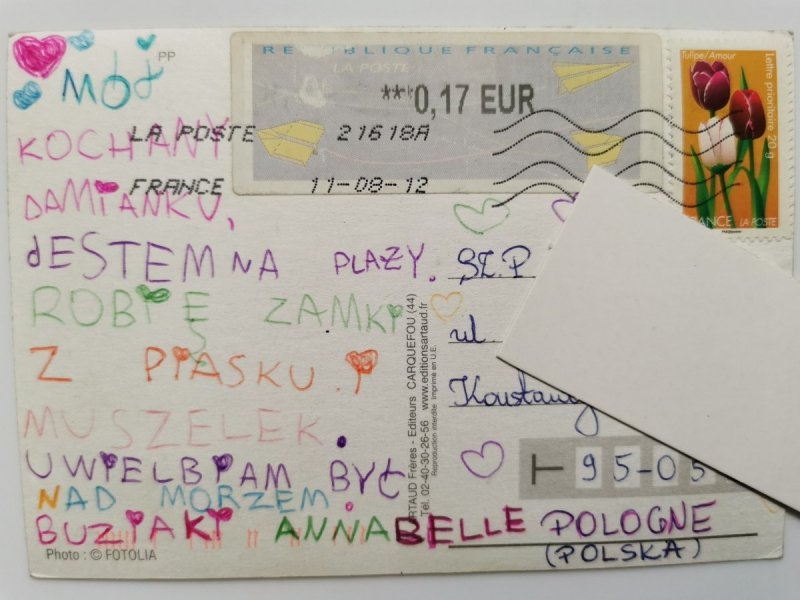 PP
MÓJ
KOCHANY
DAMIANKU,
JESTEM NA PLAŻY.
ROBIĘ ZAMKI
Z PIASKU I
MUSZELEK.
UWIELBIAM BYĆ
NAD MORZEM.
BUZIAKI ANNABELLE
Photo : © FOTOLIA
REPUBLIQUE FRANÇAISE
LA POSTE
***0,17 EUR
LA POSTE 21618A
FRANCE 11-08-12
Tulipe/Amour
Lettre prioritaire 20 g
FRANCE LA POSTE
ARTAUD Frères - Editeurs CARQUEFOU (44)
Tél. 02-40-30-26-56 www.editionsartaud.fr
Reproduction interdite Imprimé en U.E.
SZ.P
ul
95-05
POLOGNE
(POLSKA)